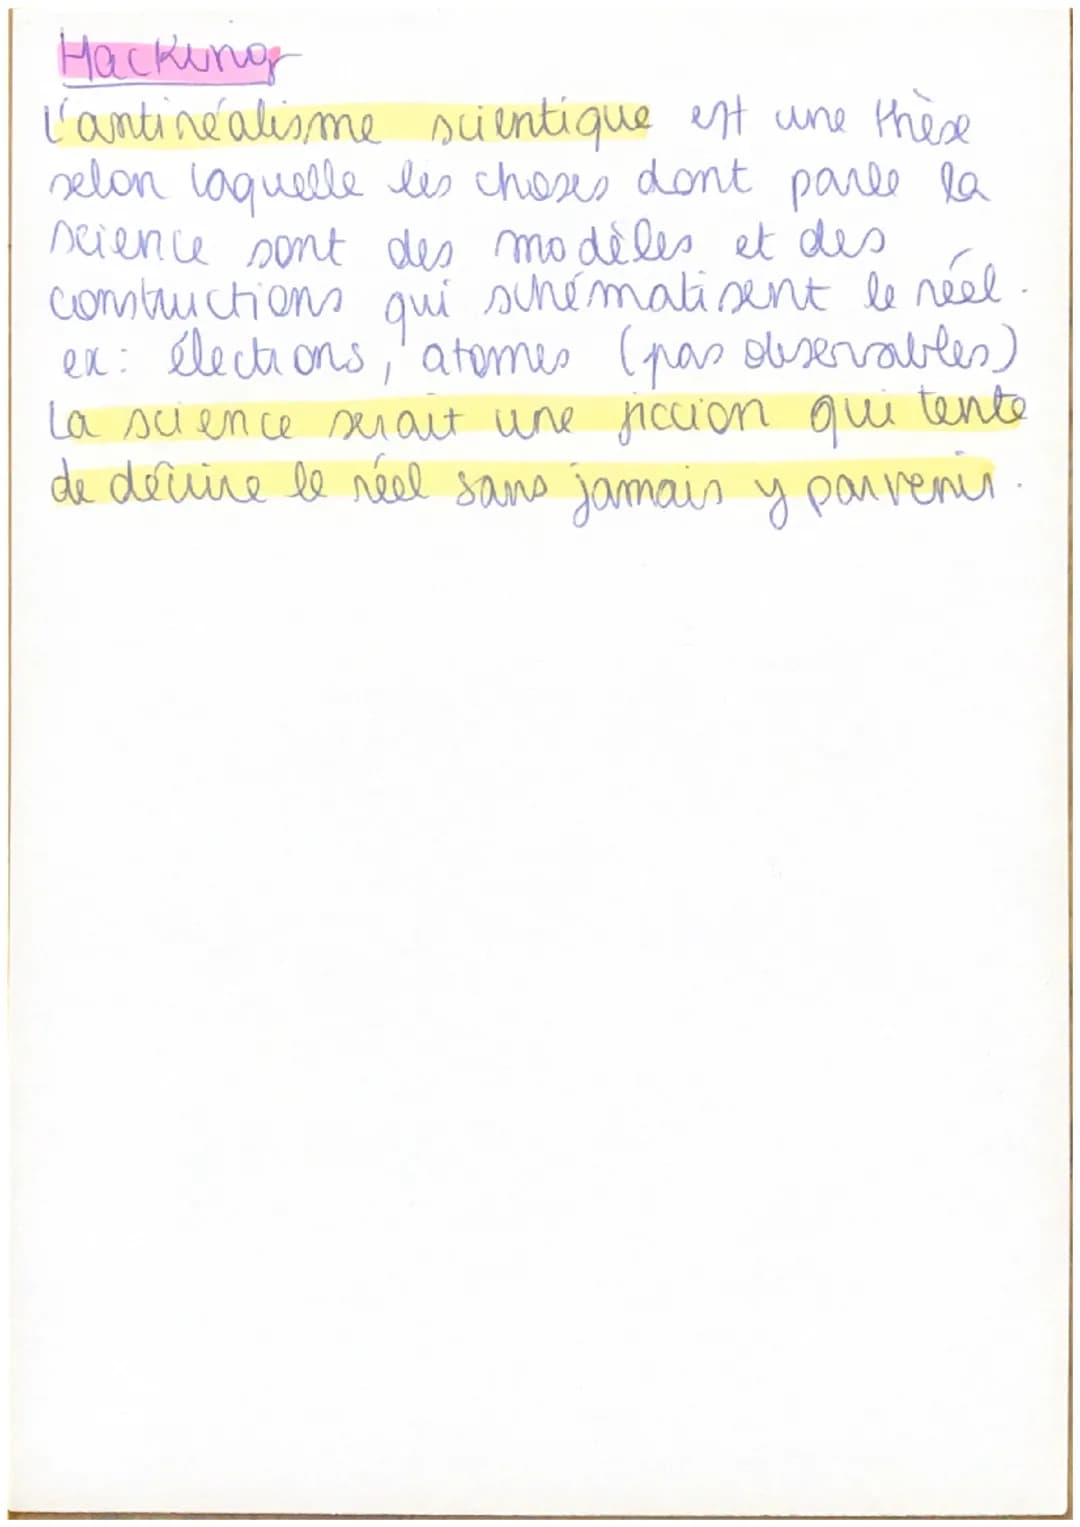 Hacking
L'antiréalisme scientique est une thèse
selon laquelle les choses dont parle la
science sont des modèles et des
constructions qui schématisent le réel.
ex: électrons, atomes (pas observables)
La science serait une ficcion qui tente
de décrire le réel sans jamais y parvenir.